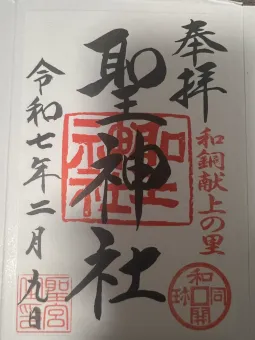 奉拝
和銅献上の里
聖神社
令和七年二月九日
和同開珎